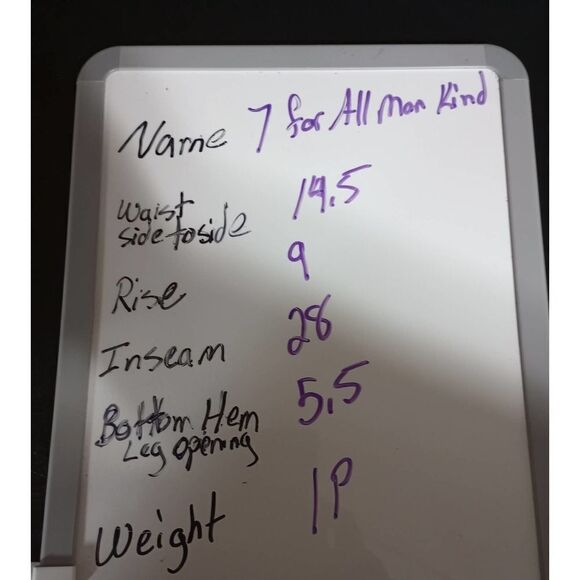 Name 7 for All Man Kind
Waist 14.5
side to side
Rise 9
Inseam 28
Bottom Hem 5.5
Leg opening
Weight 1P